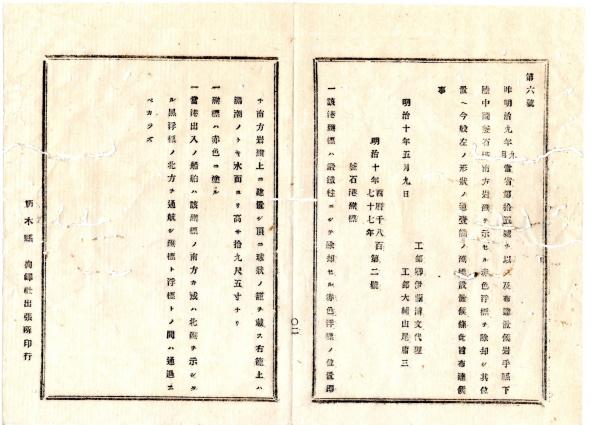 第六號
昨明治九年九月當省第拾五號ヲ以テ及布達置候岩手縣下
陸中國釜石港南方岩礁ヲ示セル赤色浮標ヲ除却シ其位
置ヘ今般左ノ形狀ノ通礁標ヲ建設置候條此旨布達候
事
明治十年五月九日
工部卿伊藤博文代理
工部大輔山尾庸三
明治十年 西曆千八百七十七年 第二號
釜石港礁標
一該港礁標ハ鐵柱ニシテ除却セル赤色浮標ノ位置即
チ南方岩礁上ニ建設シ頂ニ球狀ノ籠ヲ戴ス右籠上ハ
滿潮ノトキ水面ヨリ高サ拾九尺五寸ナリ
一礁標ハ赤色ニ塗ル
一當港出入ノ船舶ハ該礁標ノ南方カ或ハ北礁ヲ示シタ
ル黑浮標ノ北方ヲ通航シ礁標ト浮標トノ間ハ通過ス
ベカラズ
〇二
栃木縣 出張所印行